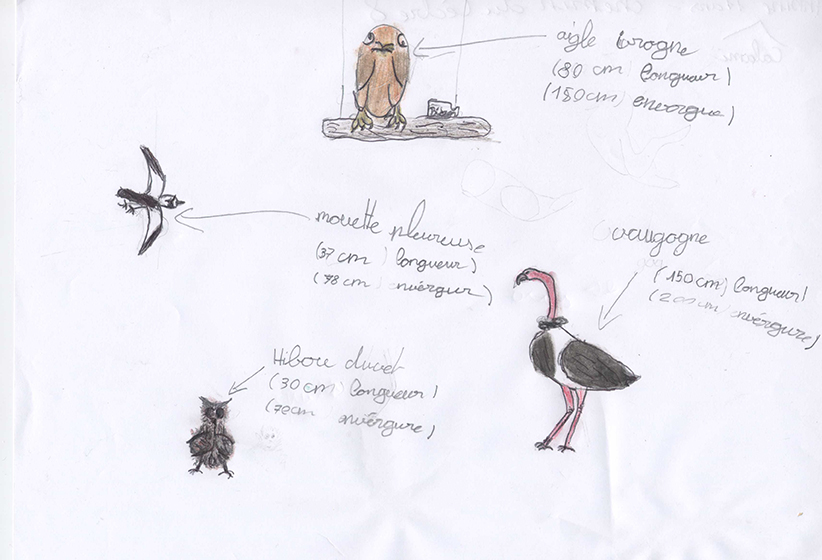 aigle ivrogne
(80 cm) longueur)
(150cm) envergue)
mouette pleureuse
(37 cm) longueur)
(78 cm) envérgur)
(150 cm) longueur)
envérgure)
Hibou duvet
(30 cm longueur)
(70cm envérgure)